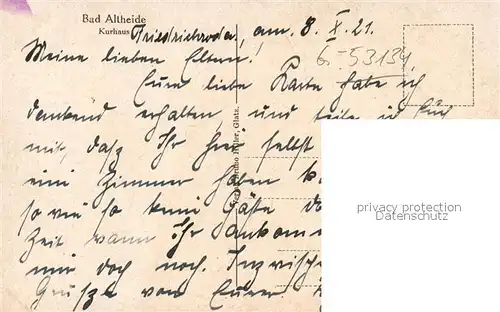 Bad Altheide
Kurhaus
Friedrichroda, am. 8. X. 21.
Meine lieben Eltern!
G-53134
Eure liebe Karte habe ich
dankend erhalten und teile ich Euch
mit, daß Ihr hier selbst
ein Zimmer haben
so wie so keine Gäste
Zeit wann Ihr ankom
mir doch noch. Inzwische
Grüße von Eurer
Glatz.
privacy protection
Datenschutz